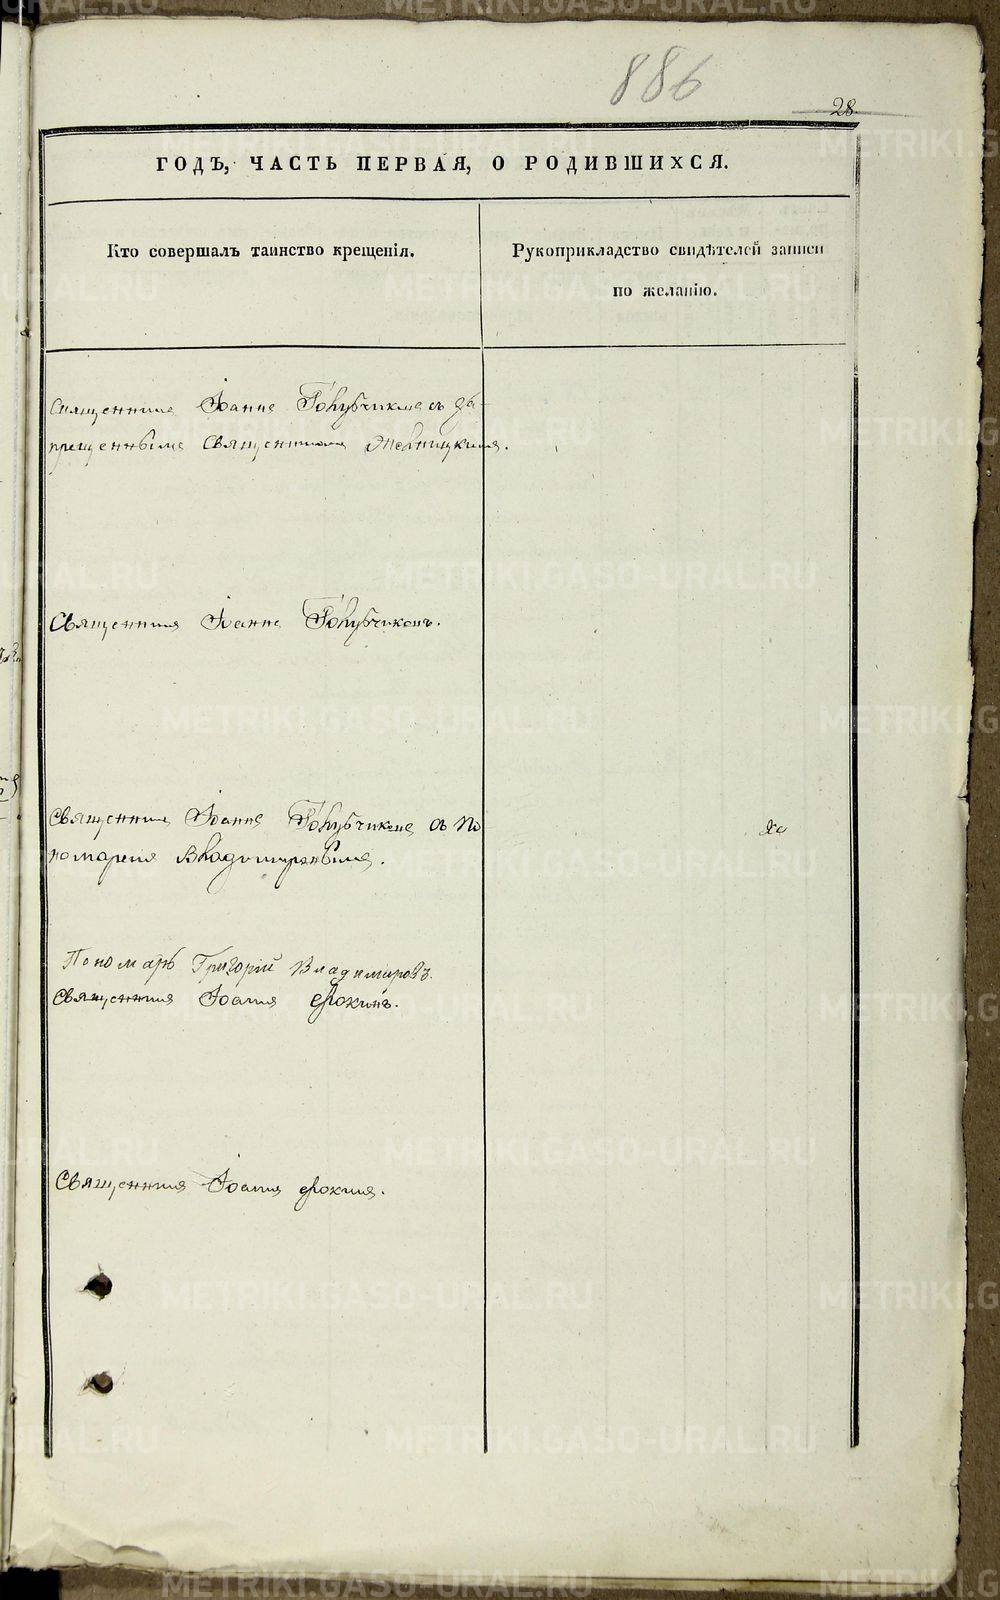 886
28.
ГОДЪ, ЧАСТЬ ПЕРВАЯ, О РОДИВШИХСЯ.
Кто совершалъ таинство крещенія.
Рукоприкладство свидѣтелей записи
по желанію.
Священникъ Іоаннъ Голубчиковъ съ за-
прещеннымъ Священникомъ
Священникъ Іоаннъ Голубчиковъ.
Священникъ Іоаннъ Голубчиковъ съ По
номаремъ Владимировымъ.
Пономарь Григорій Владимировъ.
Священникъ Іоаннъ Фокинъ.
Священникъ Іоаннъ Фокинъ.
METRIKI.GASO-URAL.RU